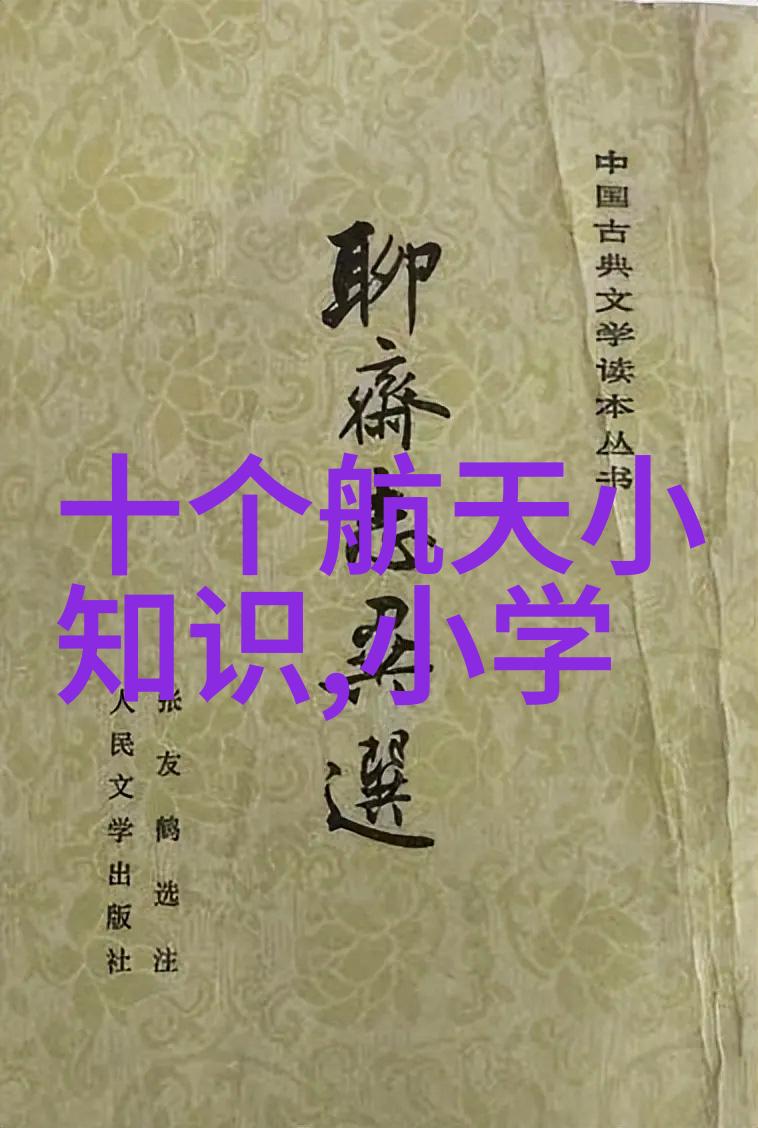 中国古典文学读本丛书
聊齋志异選
张友鹤选注
人民文学出版社
十个航天小
知识,小学